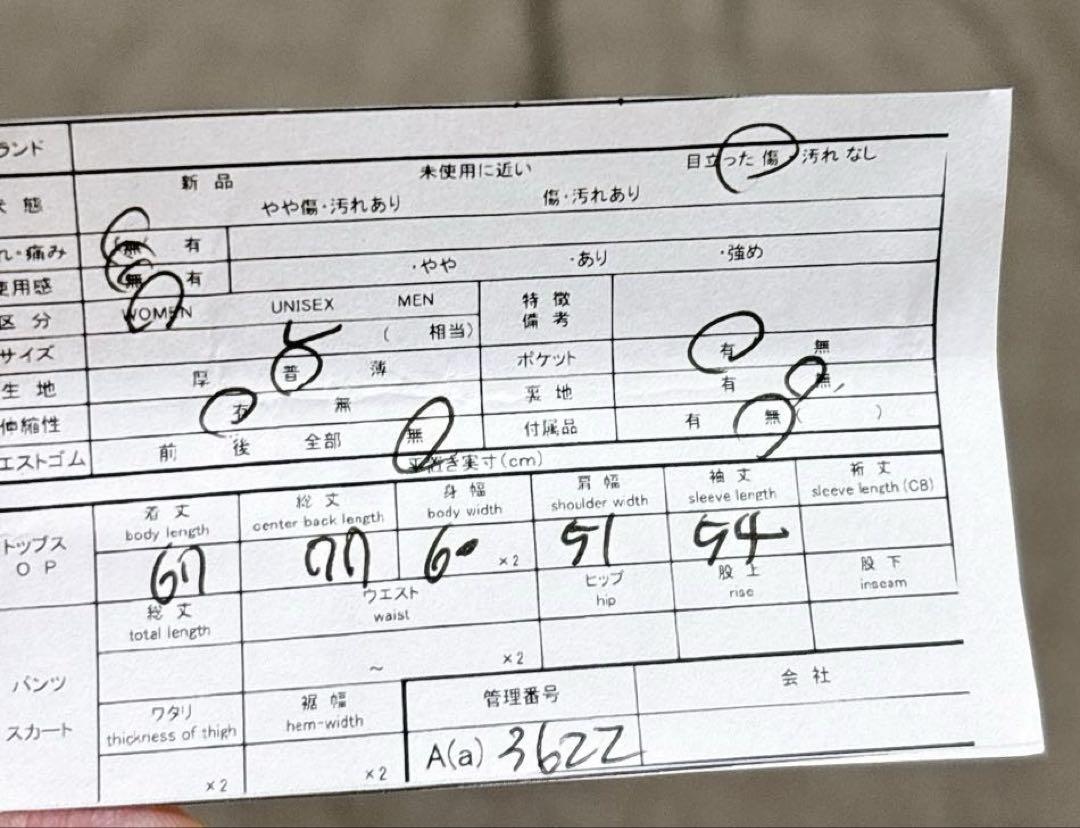 ランド
新品 未使用に近い 目立った傷・汚れなし
状態 やや傷・汚れあり 傷・汚れあり
れ・痛み 無 有
使用感 無 有 ・やや ・あり ・強め
区分 WOMEN UNISEX MEN 特徴 備考
サイズ L ( 相当)
生地 厚 普 薄 ポケット 有 無
伸縮性 有 無 裏地 有 無
エストゴム 前 後 全部 無 付属品 有 無( )
平置き実寸(cm)
トップス OP
着丈 総丈 身幅 肩幅 袖丈 裄丈
body length center back length body width shoulder width sleeve length sleeve length(CB)
67 77 60 ×2 51 54
総丈 ウエスト ヒップ 股上 股下
total length waist hip rise inseam
パンツ ~ ×2
スカート
ワタリ 裾幅 管理番号 会社
thickness of thigh hem-width
×2 ×2 A(a) 3622